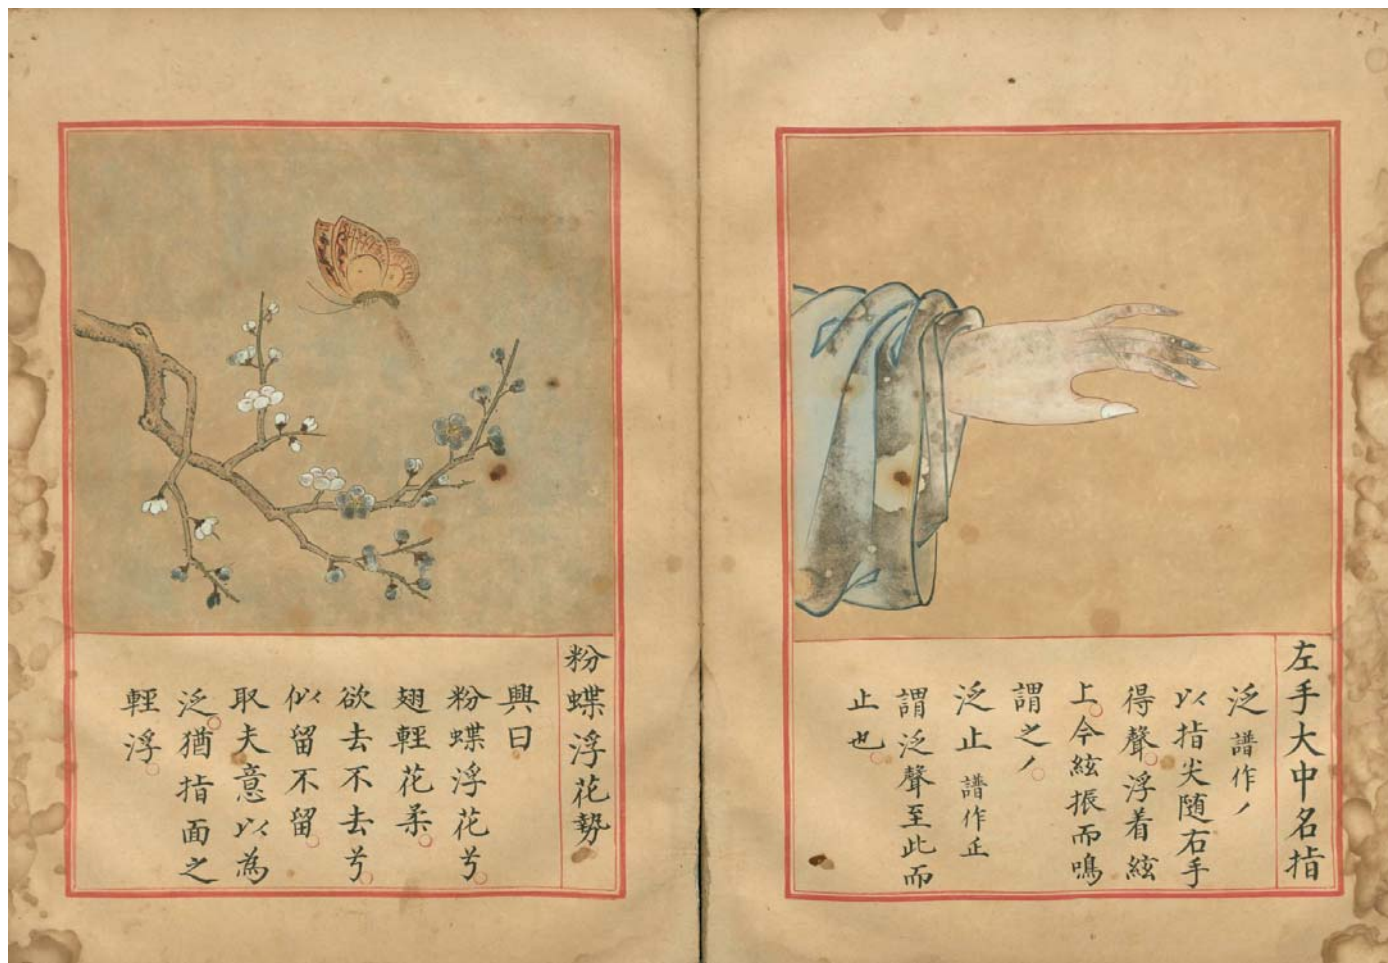 左手大中名指
泛 譜作丿
以指尖随右手
得聲。浮着絃
上。今絃振而鳴
謂之丿。
泛止 譜作正
謂泛聲至此而
止也。
粉蝶浮花勢
興曰
粉蝶浮花兮。
翅輕花柔。
欲去不去兮。
似留不留。
取夫意以為
泛。猶指面之
輕浮。